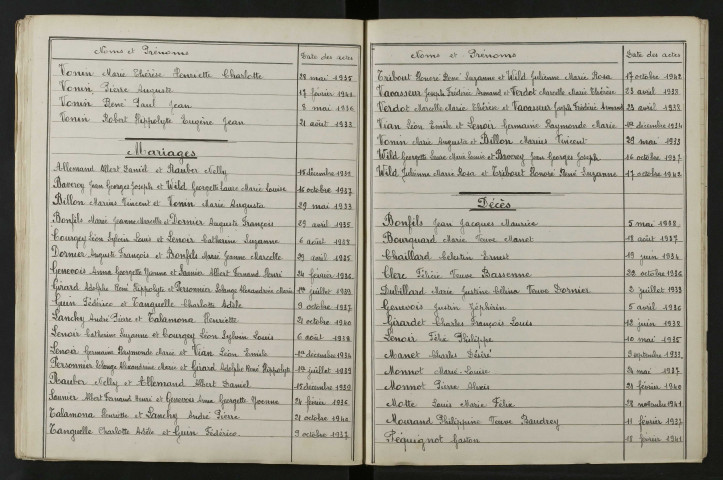 Noms et Prénoms Date des actes
Vonin Marie Thérèse Henriette Charlotte 28 mai 1935
Vonin Pierre Auguste 17 février 1941
Vonin René Paul Jean 8 mai 1936
Vonin Robert Hippolyte Eugène Jean 21 août 1933
Mariages
Allemand Albert Daniel et Rauber Nelly 15 décembre 1939
Baverey Jean Georges Joseph et Wild Georgette Laure Marie Louise 16 octobre 1937
Billon Marius Vincent et Vonin Marie Augusta 29 mai 1933
Bonfils Marie Jeanne Marcelle et Dornier Auguste François 29 avril 1935
Courgey Léon Sylvain Louis et Lenoir Catherine Suzanne 6 août 1938
Dornier Auguste François et Bonfils Marie Jeanne Marcelle 29 avril 1935
Genevois Anna Georgette Yvonne et Saunier Albert Fernand Henri 24 février 1936
Girard Adolphe René Hippolyte et Personnier Solange Alexandrine Marie 1er juillet 1939
Guin Frédéric et Tanguelle Charlotte Adèle 9 octobre 1937
Lanchy André Pierre et Talamona Henriette 21 octobre 1940
Lenoir Catherine Suzanne et Courgey Léon Sylvain Louis 6 août 1938
Lenoir Germaine Raymonde Marie et Vian Léon Emile 1er décembre 1934
Personnier Solange Alexandrine Marie et Girard Adolphe René Hippolyte 1er juillet 1939
Rauber Nelly et Allemand Albert Daniel 15 décembre 1939
Saunier Albert Fernand Henri et Genevois Anna Georgette Yvonne 24 février 1936
Talamona Henriette et Lanchy André Pierre 21 octobre 1940
Tanguelle Charlotte Adèle et Guin Frédéric 9 octobre 1937
Noms et Prénoms Date des actes
Tribout Honoré René Suzanne et Wild Julienne Marie Rosa 17 octobre 1942
Vacasseur Joseph Frédéric Armand et Verdot Marcelle Marie Thérèse 23 avril 1938
Verdot Marcelle Marie Thérèse et Vacasseur Joseph Frédéric Armand 23 avril 1938
Vian Léon Emile et Lenoir Germaine Raymonde Marie 1er décembre 1934
Vonin Marie Augusta et Billon Marius Vincent 29 mai 1933
Wild Georgette Laure Marie Louise et Baverey Jean Georges Joseph 16 octobre 1937
Wild Julienne Marie Rosa et Tribout Honoré René Suzanne 17 octobre 1942
Décès
Bonfils Jean Jacques Maurice 5 mai 1938
Bourquard Marie Veuve 18 août 1937
Chaillard Célestin Ernest 19 juin 1934
Clerc Félicie Veuve Bassenne 20 octobre 1936
Dubillard Marie Justine Célina Veuve Dornier 2 juillet 1938
Genevois Justin Zéphirin 5 avril 1936
Girardet Charles François Louis 12 juin 1938
Lenoir Félix Philippe 10 mai 1935
Manet Charles Désiré septembre
Monnot Marie Louise 24 mai 1937
Monnot Pierre Alexis 24 février 1940
Motte Louis Marie Félix 28 novembre 1941
Mourand Philippine Veuve Baudrey 11 février 1937
Péquignot Gaston 18 février 1941